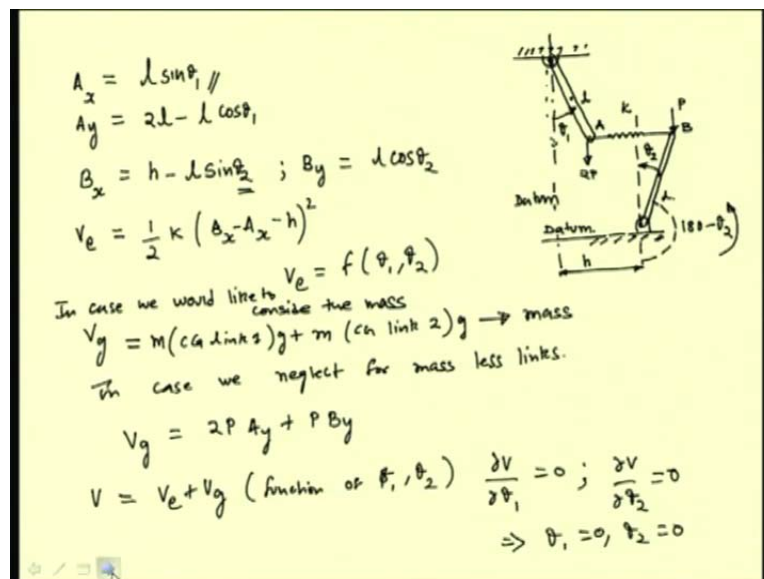 A_x = l sinθ_1 //
A_y = 2l - l cosθ_1
B_x = h - l sinθ_2 ; B_y = l cosθ_2
V_e = 1/2 K (B_x - A_x - h)^2
V_e = f(θ_1, θ_2)
In case we would like to conside the mass
V_g = m(CG link 1)g + m (CG link 2)g → mass
In case we neglect for mass less links.
V_g = 2P A_y + P B_y
V = V_e + V_g (function of θ_1, θ_2) ∂V/∂θ_1 = 0 ; ∂V/∂θ_2 = 0
⇒ θ_1 = 0, θ_2 = 0
l
θ_1
A
K
P
B
2P
θ_2
l
Datum
Datum
180-θ_2
h